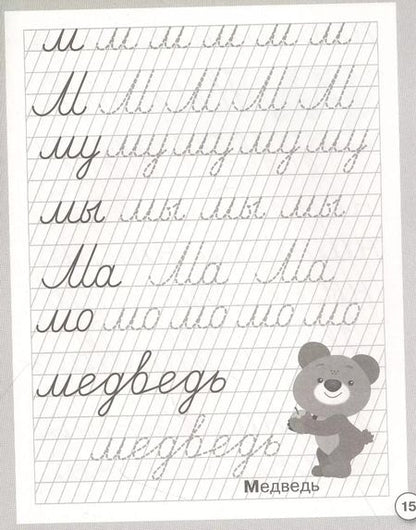 м м м м м м
М М М М М
му му му му му
мы мы мы мы
Ма Ма Ма
мо мо мо мо мо
медведь
медведь
Медведь
15